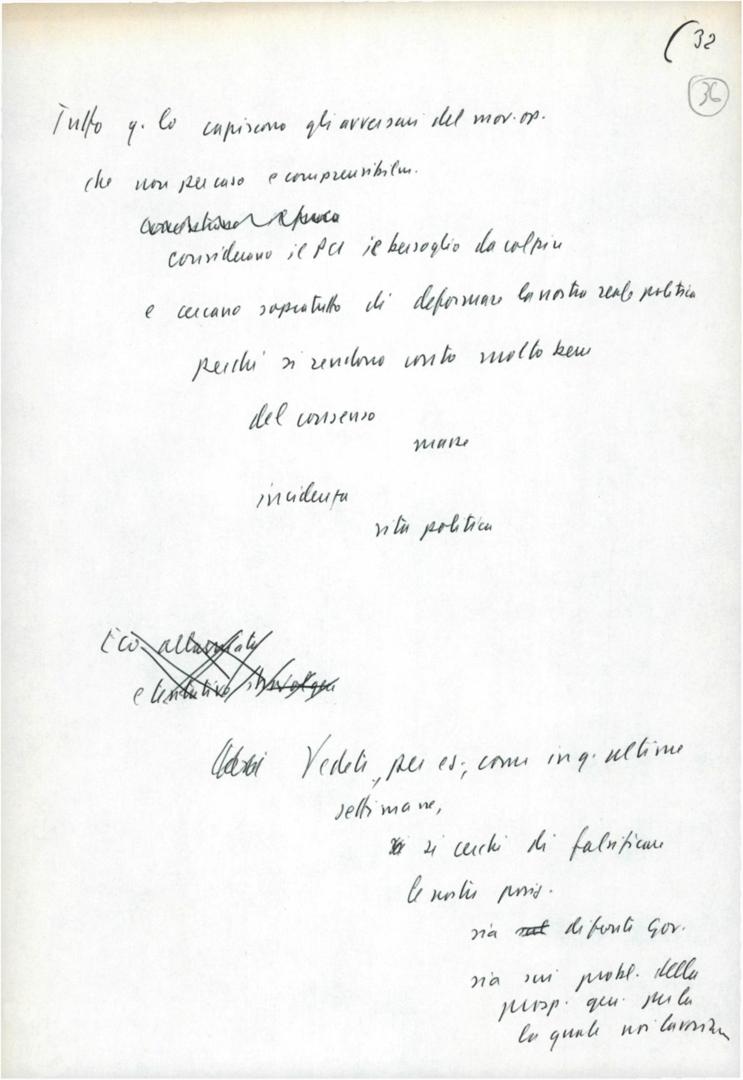 (32
36
Tutto q. lo capiscono gli avversari del mov. op.
che non per caso e comprensibilm.
considerano il PCI il bersaglio da colpire
e cercano sopratutto di deformare la nostra reale politica
perché si rendono conto molto bene
del consenso
masse
incidenza
vita politica
Eco
e tentativo
Vedete, per es., come in q. ultime
settimane,
si cerchi di falsificare
le nostre posiz.
sia di fronte Gov.
sia sui probl. della
prosp. gen. per la
la quale noi lavoriam